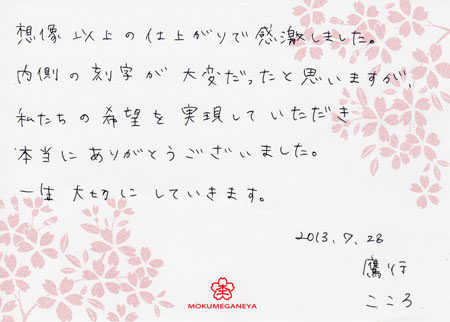 想像以上の仕上がりで感激しました。
内側の刻字が大変だったと思いますが、
私たちの希望を実現していただき
本当にありがとうございました。
一生大切にしていきます。
2013.9.28
鷹行
こころ
MOKUMEGANEYA